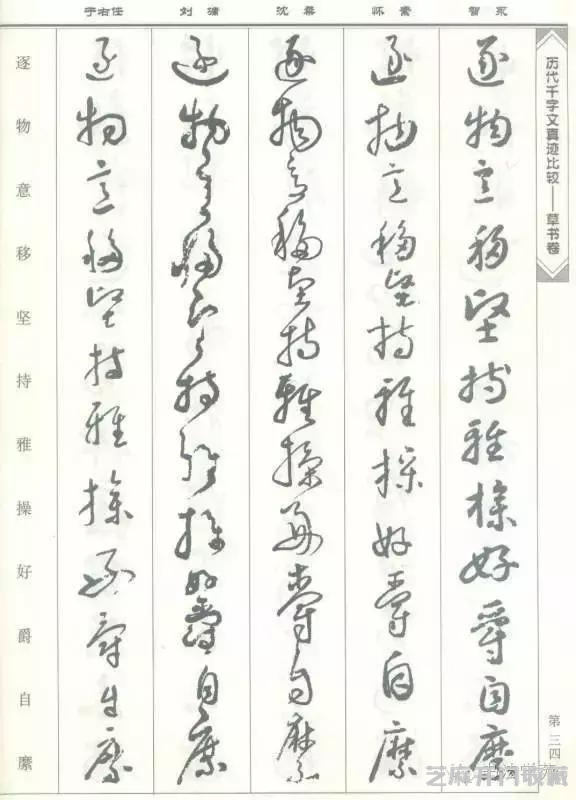 历代千字文真迹比较——草书卷
智永
逐物意移坚持雅操好爵自縻
怀素
逐物意移坚持雅操好爵自縻
沈粲
逐物意移坚持雅操好爵自縻
刘墉
逐物意移坚持雅操好爵自縻
于右任
逐物意移坚持雅操好爵自縻
逐物意移坚持雅操好爵自縻
第三四
芝麻开门收藏